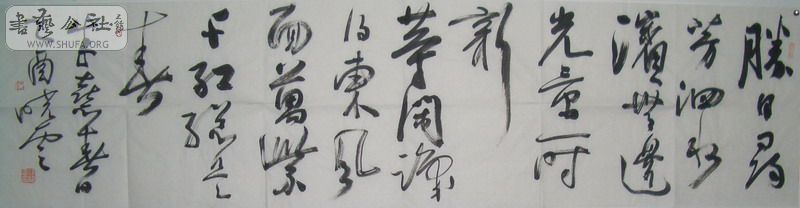 勝日尋
芳泗水
濱無邊
光景一時
新
等閒識
得東風
面萬紫
千紅總是
春
朱熹春日
酉曉雲
書藝公社
www.SHUFA.ORG